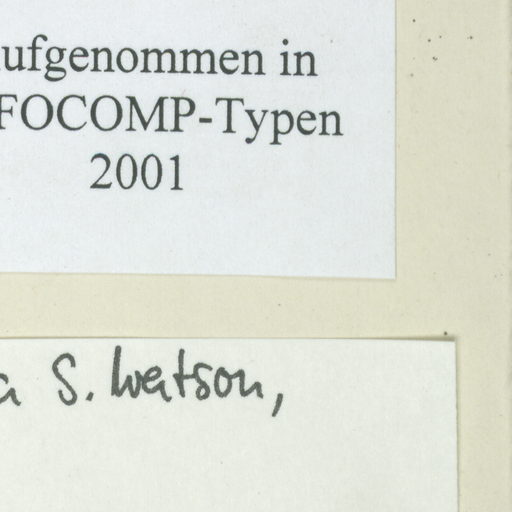 aufgenommen in
FOCOMP-Typen
2001
a S. Watson,